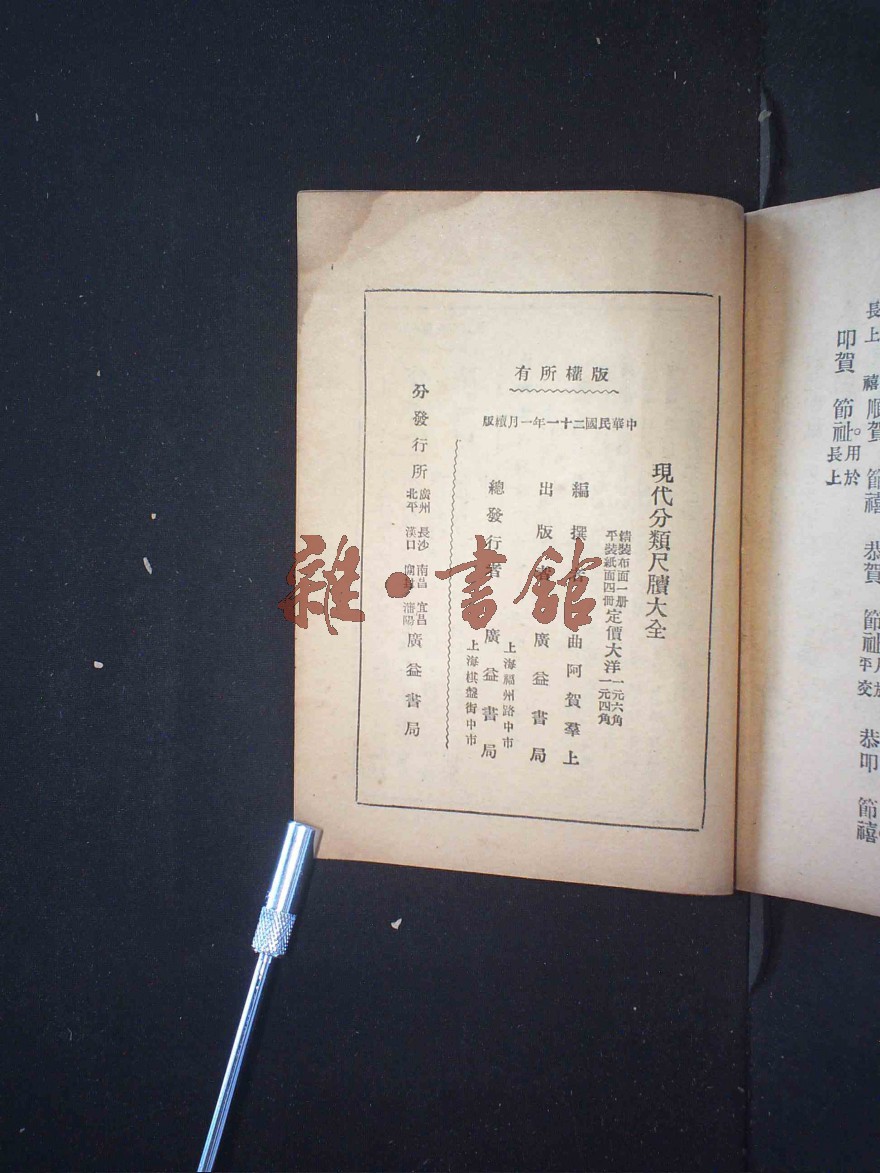 長上
禧
順賀
節禧
恭賀
節祉
恭叩
節禧
叩賀
節祉。用於長上
現代分類尺牘大全
精裝布面一册
平裝紙面四冊
定價大洋
一元六角
一元四角
版權所有
中華民國二十一年一月續版
編撰者 曲阿賀羣上
出版者 廣益書局
上海福州路中市
總發行者 廣益書局
上海棋盤街中市
分發行所
廣州 長沙 南昌 宜昌
北平 漢口 瀋陽
廣益書局
雜·書館